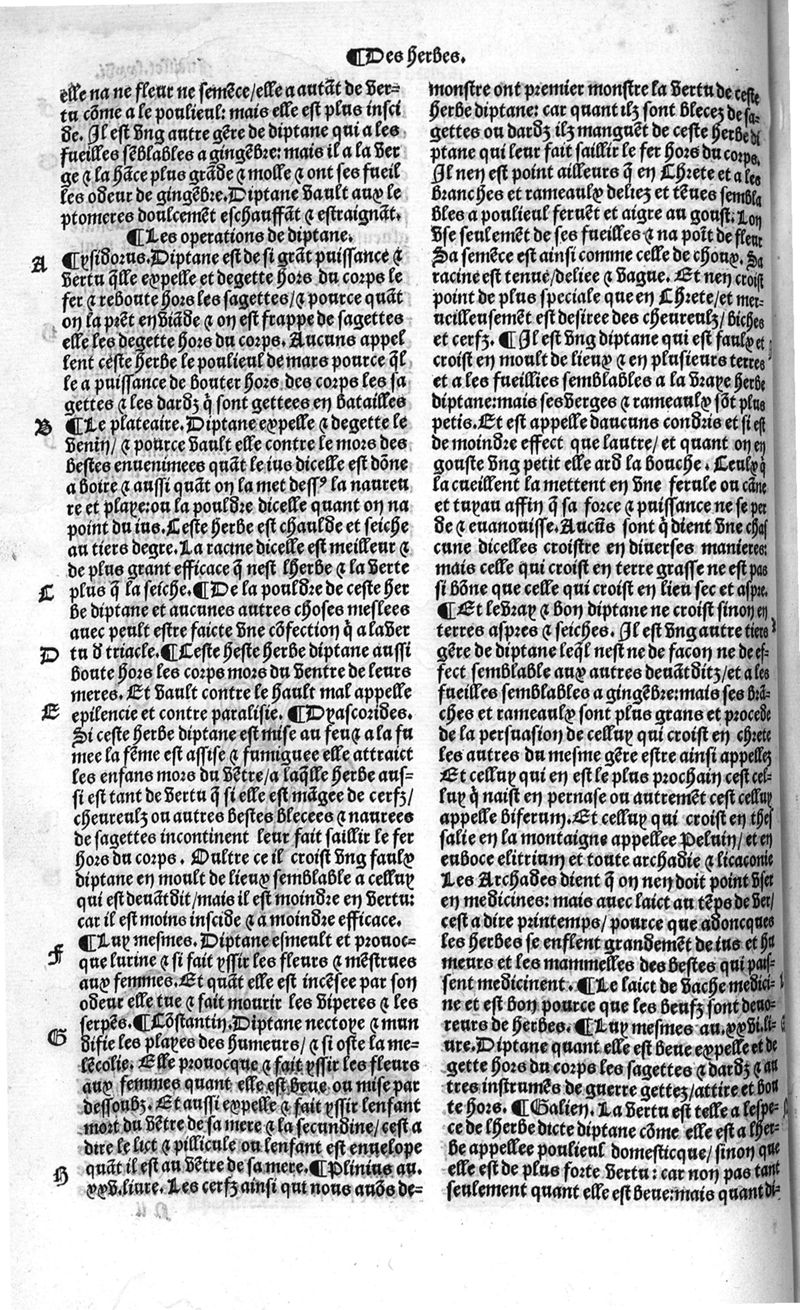 ¶Des herbes.
elle na ne fleur ne semēce/elle a autāt de ver=
tu cōme a le poulieul: mais elle est plus insci
de. Il est vng autre gēre de diptane qui a les
fueilles sēblables a gingēbre: mais il a la ver
ge ⁊ la hāce plus grāde ⁊ molle ⁊ ont ses fueil
les odeur de gingēbre. Diptane vault aux le
ptomeres doulcemēt eschauffāt ⁊ estraignāt.
¶Les operations de diptane.
A ¶ysidorus. Diptane est de si grāt puissance ⁊
vertu q̄lle expelle et degette hors du corps le
fer ⁊ reboute hors les sagettes/⁊ pource quāt
on la prēt en viāde ⁊ on est frappe de sagettes
elle les degette hors du corps. Aucuns appel
lent ceste herbe le poulieul de mars pource q̄l
le a puissance de bouter hors des corps les sa
gettes ⁊ les dardz q̄ sont gettees en batailles
B ¶Le plateaire. Diptane expelle ⁊ degette le
venin/⁊ pource vault elle contre le mors des
bestes enuenimees quāt le ius dicelle est dōne
a boire ⁊ aussi quāt on la met dessꝰ la naureu
re et playe: ou la pouldre dicelle quant on na
point du ius. Ceste herbe est chaulde et seiche
au tiers degre. La racine dicelle est meilleur ⁊
de plus grant efficace q̄ nest lherbe ⁊ la verte
C plus q̄ la seiche. ¶De la pouldre de ceste her
be diptane et aucunes autres choses meslees
auec peult estre faicte vne cōfection q̄ a la ver
D tu d triacle. ¶Ceste heste herbe diptane aussi
boute hors les corps mors du ventre de leurs
meres. Et vault contre le hault mal appelle
E epilencie et contre paralisie. ¶Dyascorides.
Si ceste herbe diptane est mise au feu ⁊ a la fu
mee la fēme est assise ⁊ fumiguee elle attraict
les enfans mors du vētre/a laq̄lle herbe aus=
si est tant de vertu q̄ si elle est māgee de cerfz/
cheureulz ou autres bestes blecees ⁊ naurees
de sagettes incontinent leur fait saillir le fer
hors du corps. Oultre ce il croist vng faulx
diptane en moult de lieux semblable a celluy
qui est deuāt dit/mais il est moindre en vertu:
car il est moins inscide ⁊ a moindre efficace.
F ¶Luy mesmes. Diptane esmeult et prouoc=
que lurine ⁊ si fait yssir les fleurs ⁊ mēstrues
aux femmes. Et quāt elle est incēsee par son
odeur elle tue ⁊ fait mourir les viperes ⁊ les
G serpēs. ¶Cōstantin. Diptane nectoye ⁊ mun
difie les playes des humeurs/⁊ si oste la me=
lēcolie. Elle prouocque ⁊ fait yssir les fleurs
aux femmes quant elle est beue ou mise par
dessoubz. Et aussi expelle ⁊ fait yssir lenfant
mort du vētre de sa mere ⁊ la secundine/cest a
dire le lict ⁊ pillicule ou lenfant est enuelope
H quāt il est au vētre de sa mere. ¶Plinius au.
xxv.liure. Les cerfz ainsi qui nous auōs de=
monstre ont premier monstre la vertu de ceste
herbe diptane: car quant ilz sont blecez de sa=
gettes ou dardz ilz manguēt de ceste herbe di
ptane qui leur fait saillir le fer hors du corps.
Il nen est point ailleurs q̄ en Chrete et a les
branches et rameaulx deliez et tēues sembla
bles a poulieul feruēt et aigre au goust. Lon
vse seulemēt de ses fueilles ⁊ na poīt de fleur
Sa semēce est ainsi comme celle de choux. Sa
racine est tenue/deliee ⁊ vague. Et nen croist
point de plus speciale que en Chrete/et mer=
ueilleusement est desiree des cheureulz/biches
et cerfz. ¶Il est vng diptane qui est faulx et
croist en moult de lieux ⁊ en plusieurs terres
et a les fueillies semblables a la vraye herbe
diptane: mais ses verges ⁊ rameaulx sōt plus
petis. Et est appelle daucuns condris et si est
de moindre effect que lautre/et quant on en
gouste vng petit elle ard la bouche. Ceulx q̄
la cueillent la mettent en vne ferule ou cāne
et tuyau affin q̄ sa force ⁊ puissance ne se per
de ⁊ euanouisse. Aucūs sont q̄ dient vne chas
cune dicelles croistre en diuerses manieres:
mais celle qui croist en terre grasse ne est pas
si bōne que celle qui croist en lieu sec et aspre.
¶Et le vray ⁊ bon diptane ne croist sinon en
terres aspres ⁊ seiches. Il est vng autre tiers
gēre de diptane leq̄l nest ne de facon ne de ef=
fect semblable aux autres deuātditz/et a les
fueilles semblables a gingēbre: mais ses brā=
ches et rameaulx sont plus grans et procede
de la persuasion de celluy qui croist en chrete
les autres du mesme gēre estre ainsi appellez
Et celluy qui en est le plus prochain cest cel=
luy q̄ naist en pernase ou autremēt cest celluy
appelle biferum. Et celluy qui croist en thes
salie en la montaigne appellee Peluin/et en
euboce elitrium et toute archadie ⁊ licaconie
Les Archades dient q̄ on nen doit point vser
en medicines: mais auec laict au tēps de ver/
cest a dire printemps/pource que adoncques
les herbes se enflent grandemēt de ius et hu
meurs et les mammelles des bestes qui pais=
sent medicinent. ¶Le laict de vache medici=
ne et est bon pource que les beufz sont deuo=
reurs de herbes. ¶Luy mesmes au.xxvi.li=
ure. Diptane quant elle est beue expelle et de
gette hors du corps les sagettes ⁊ dardz ⁊ au
tres instrumēs de guerre gettez/attire et bou
te hors. ¶Galien. La vertu est telle a lespe=
ce de lherbe dicte diptane cōme elle est a lher=
be appellee poulieul domesticque/sinon que
elle est de plus forte vertu: car non pas tant
seulement quant elle est beue: mais quant di=